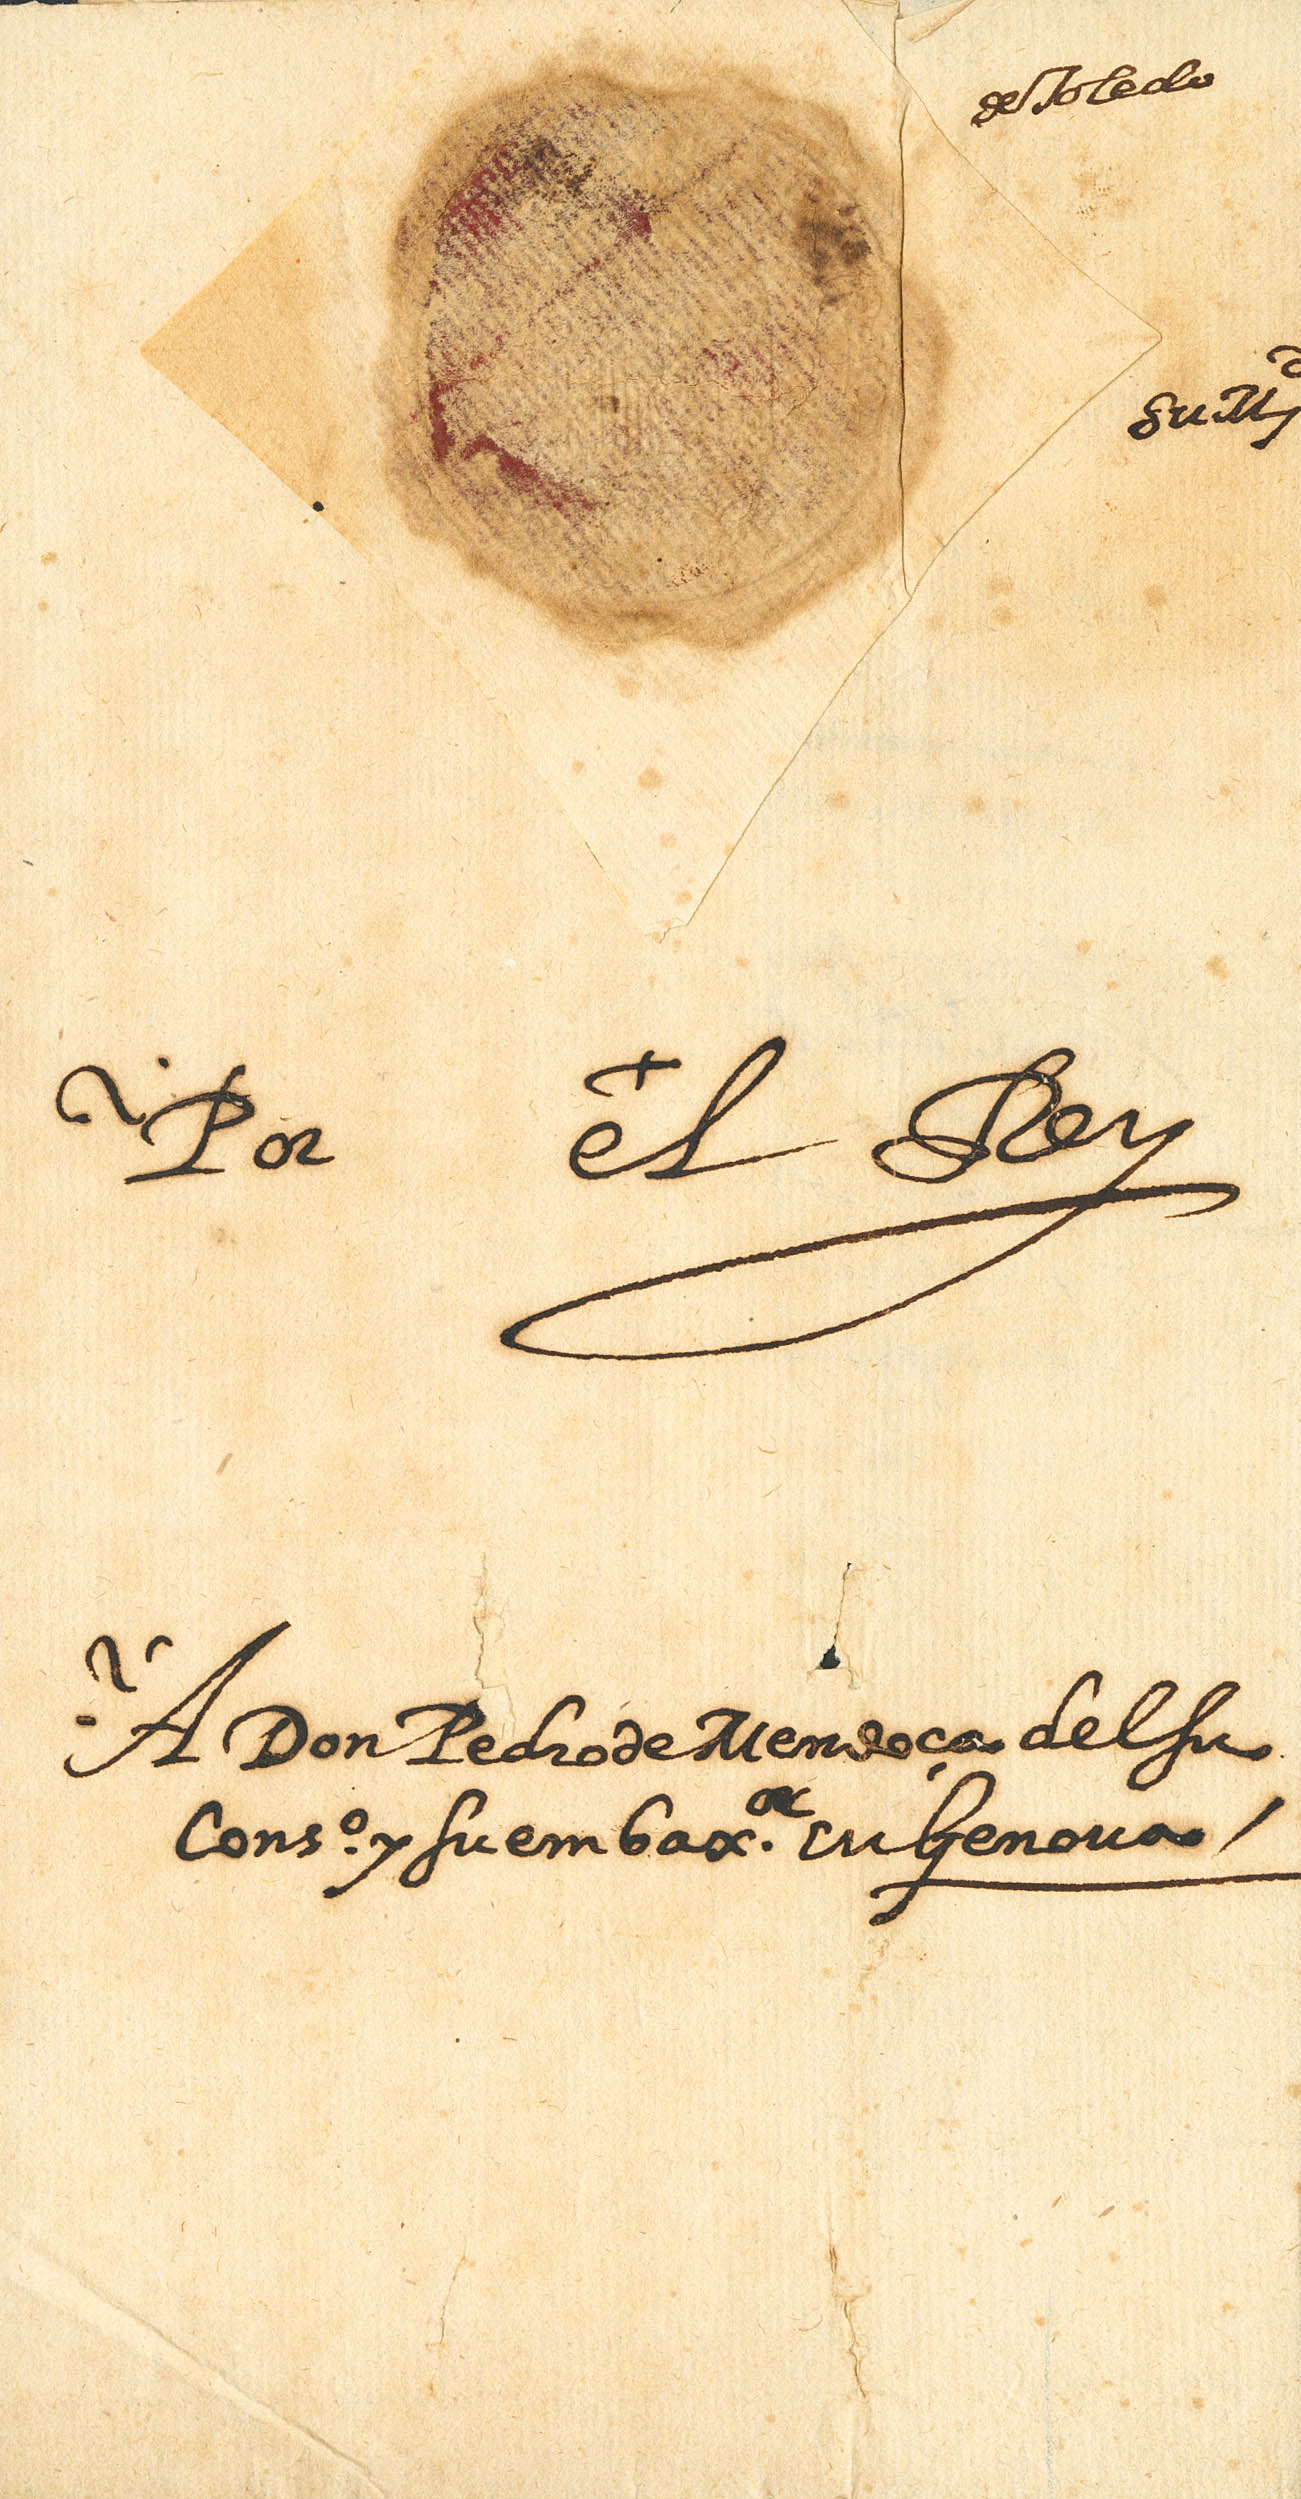 de Toledo
su Mg.d
Por el Rey
A Don Pedro de Mendoça del su
Cons.o y su embax.or en Genoua